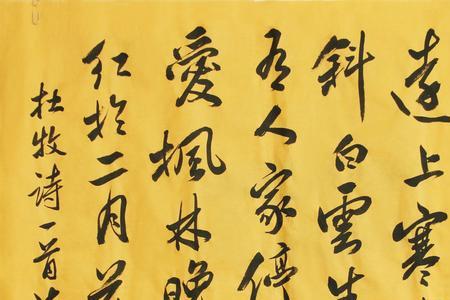 遠上寒
斜白雲生
有人家停
愛楓林晚
紅於二月花
杜牧詩一首